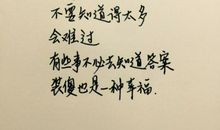 不要知道得太多
会难过
有些事不必去知道答案
装傻也是一种幸福.